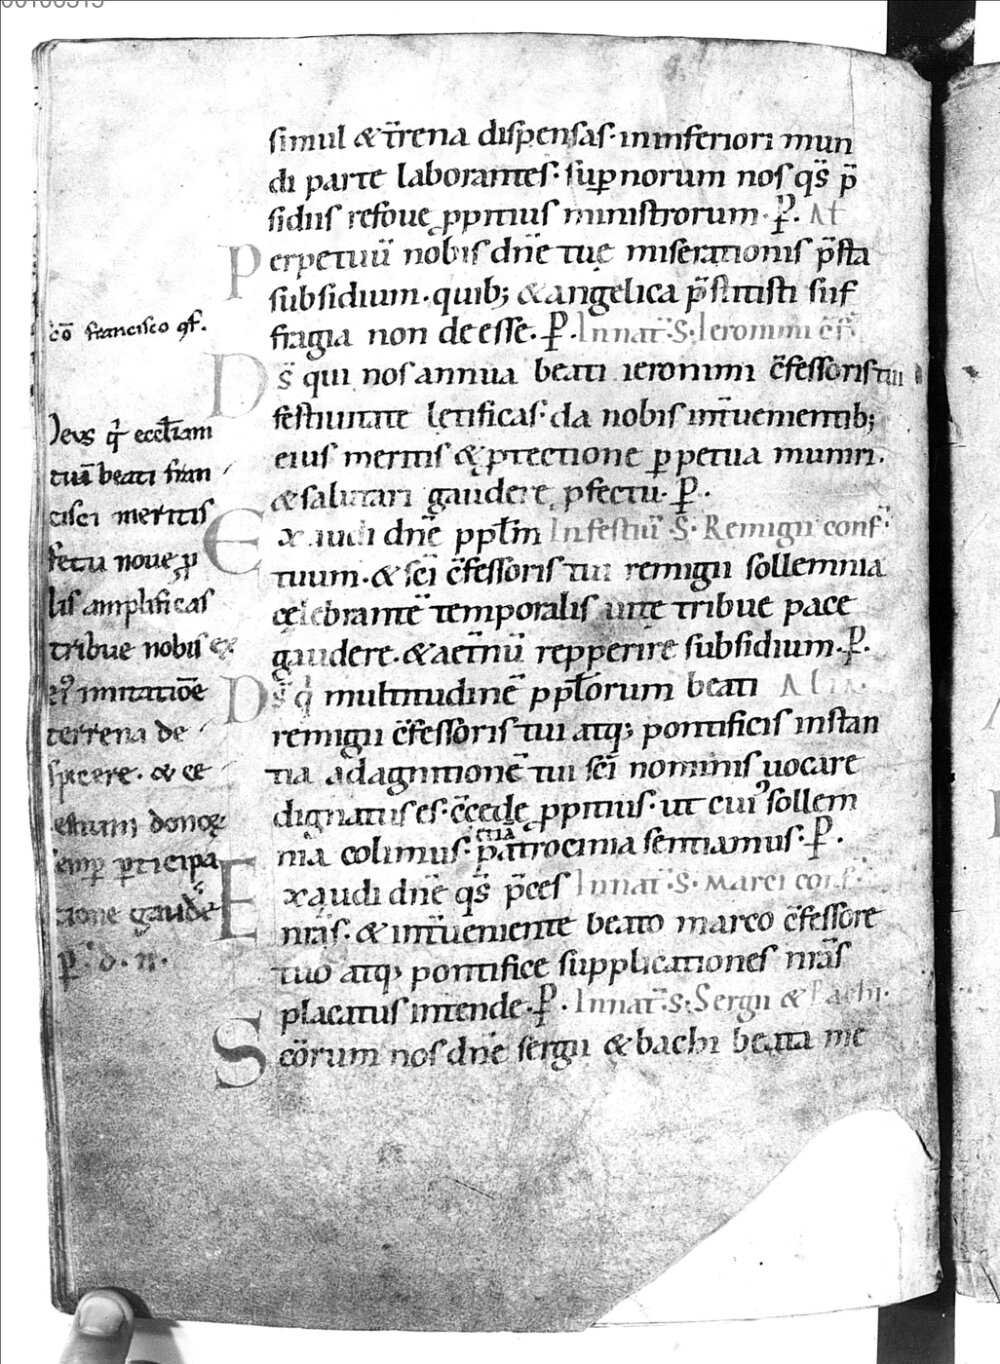 simul & t̄rena dispensas· in inferiori mun
di parte laborantes· sup̱norum nos qs̄ p̄
sidiis refoue ꝓpitius ministrorum· P̱· Al
Perpetuū nobis dn̄e tuę miserationis p̄sta
subsidium· quib; & angelica p̄stitisti suf
fragia non deesse· P̱· In nat̄· S· Ieronimi c̄f̄·
Ds̄ qui nos annua beati ieronimi c̄fessoris tui
festiuitate lętificas· da nobis int̄uenientib;
eius meritis & ꝓtectione ꝑpetua muniri·
& salutari gaudere ꝓfectu· P̱·
Exaudi dn̄e ppl̄m In festiū· S· Remigii conf̄·
tuum· & sc̄i c̄fessoris tui remigii sollemnia
cęlebrantē temporalis uitę tribue pace
gaudere· & aet̄nū repperire subsidium· P̱·
Ds̄ q͛ multitudinē ppl̄orum beati Alia·
remigii c̄fessoris tui atq; pontificis instan
tia ad agnitionē tui sc̄i nominis uocare
dignatus es· c̄cede ꝓpitius· ut cui᾽ sollem
nia colimus· etiā patrocinia sentiamus· P̱·
Exaudi dn̄e qs̄ p̄ces In nat̄· S· Marci conf·
nr̄as· & int̄ueniente beato marco c̄fessore
tuo atq; pontifice supplicationes nr̄as
placatus intende· P̱· In nat̄· S· Sergii & Bachi·
Sc̄orum nos dn̄e sergii & bachi beata me
c̄o francisco q̄f·
Deus q͛ eccl̄iam
tuā beati fran
cisci meritis
fetu noue ꝓ
lis amplificas
tribue nobis ex
ei᾽ imitatiōe
terrena de
spicere· & ce
lestium donoꝝ
semꝑ ꝑticipa
tione gaudē
ꝑ· d· n·